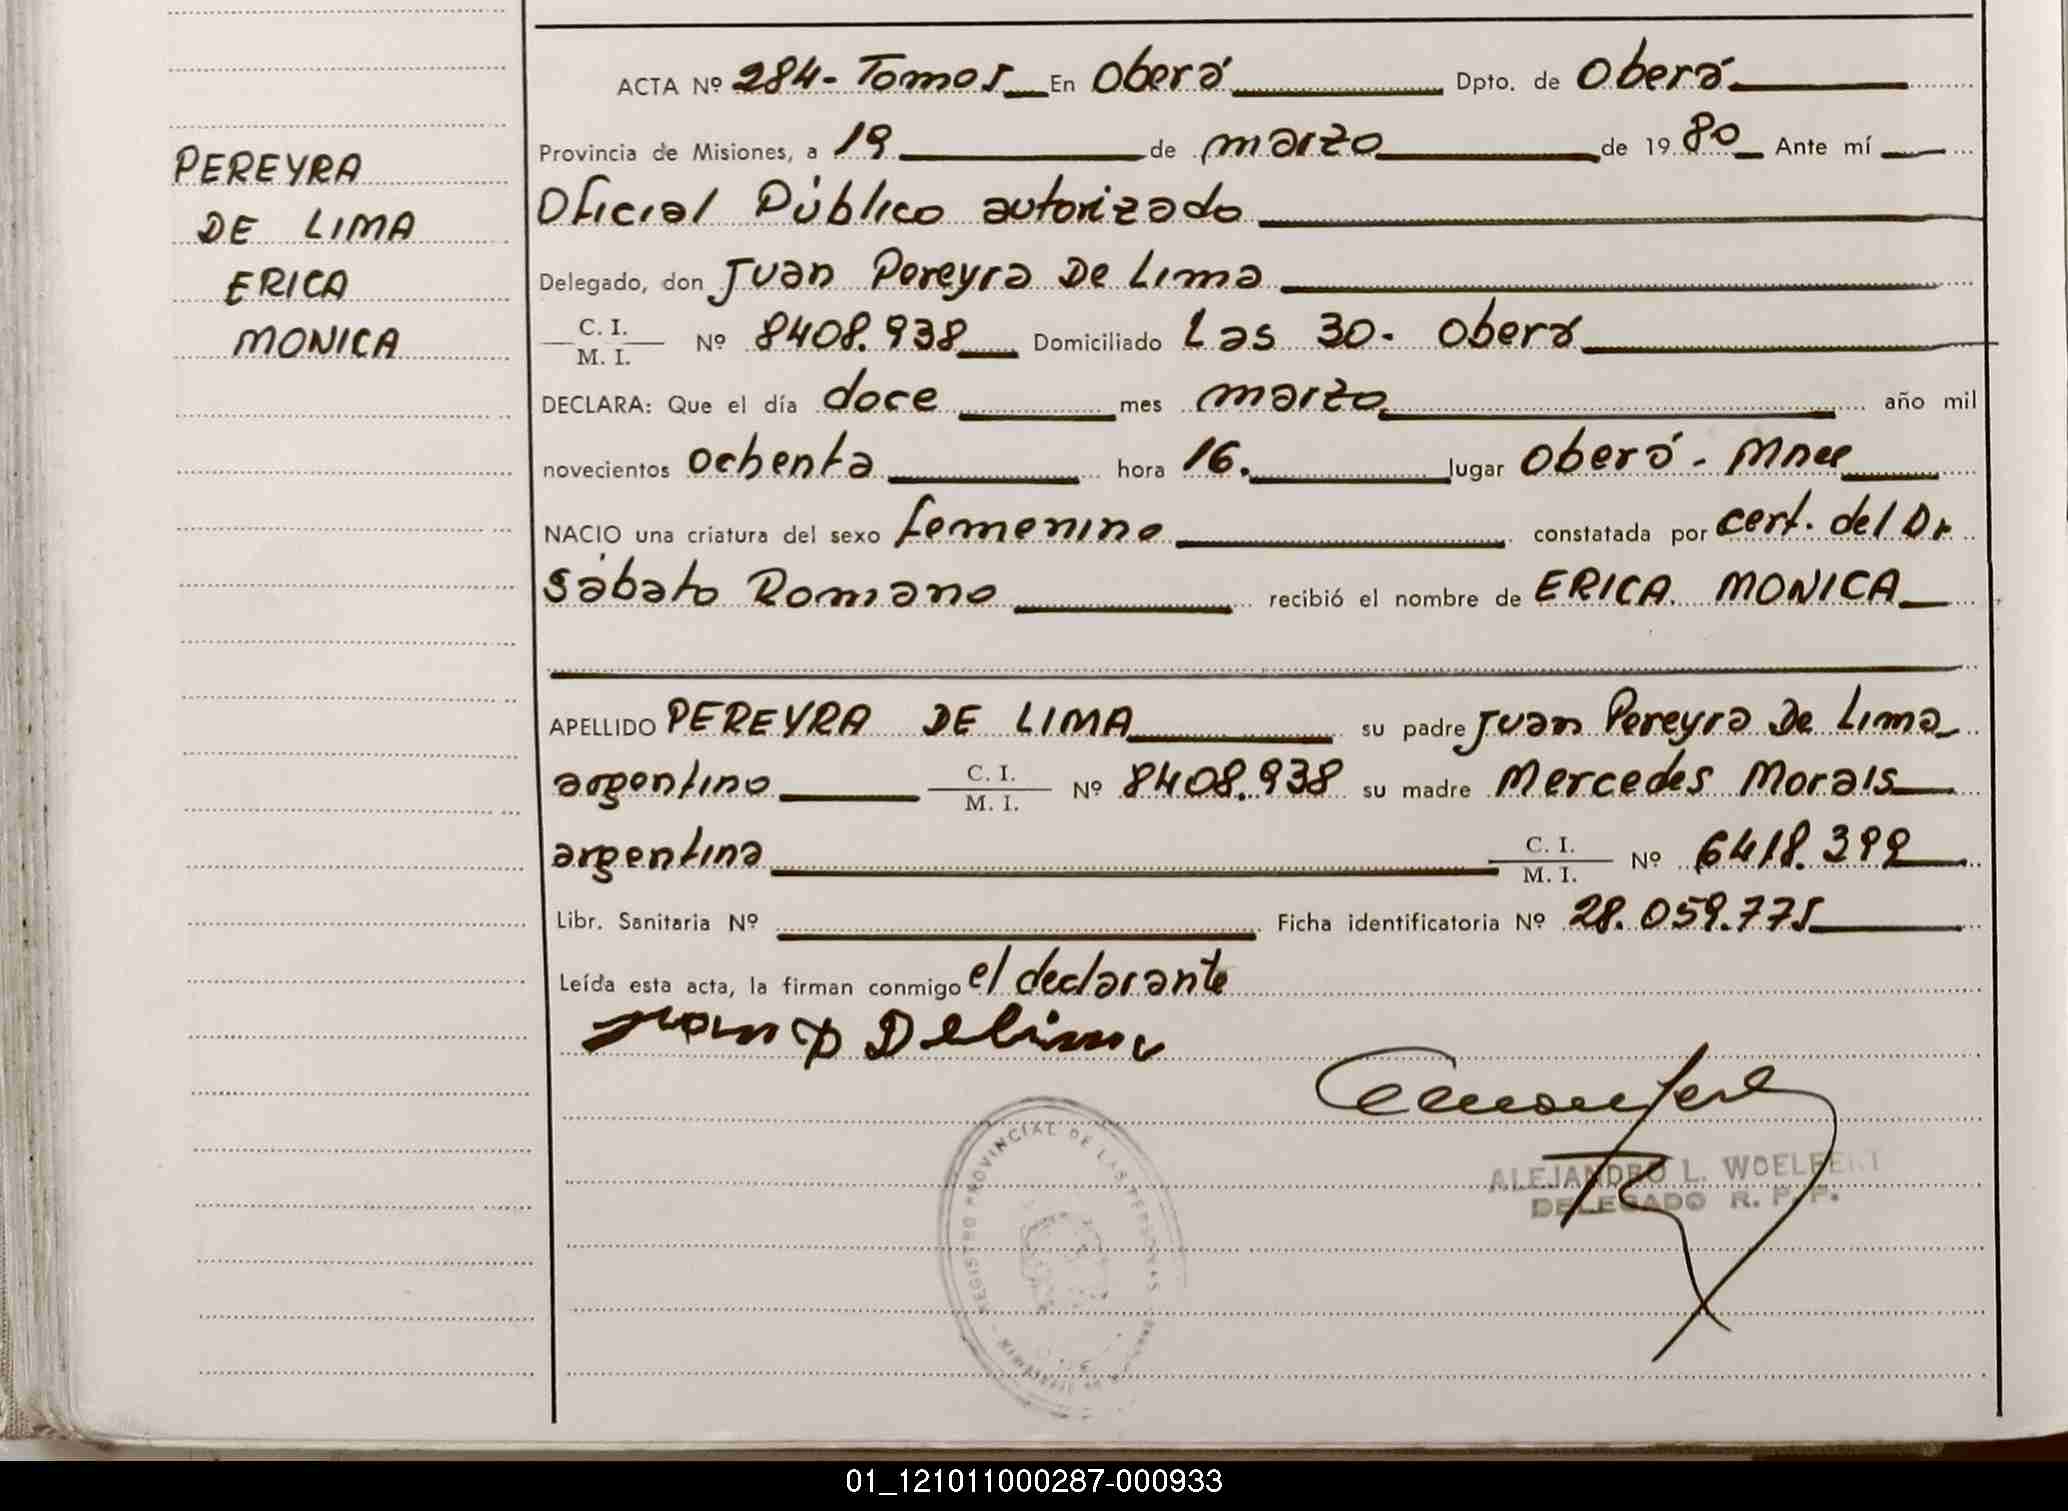 PEREYRA
DE LIMA
ERICA
MONICA
ACTA Nº 284- Tomo 5 En Oberá Dpto. de Oberá
Provincia de Misiones, a 19 de marzo de 1980 Ante mí
Oficial Público autorizado
Delegado, don Juan Pereyra De Lima
C. I.
M. I. Nº 8408.938 Domiciliado Las 30. Oberá
DECLARA: Que el día doce mes marzo año mil
novecientos ochenta hora 16. lugar Oberá - Mnes
NACIO una criatura del sexo femenino constatada por cert. del Dr
Sábato Romano recibió el nombre de ERICA MONICA
APELLIDO PEREYRA DE LIMA su padre Juan Pereyra De Lima
argentino C. I.
M. I. Nº 8408.938 su madre Mercedes Morais
argentina C. I.
M. I. Nº 6418.399
Libr. Sanitaria Nº Ficha identificatoria Nº 28.059.775
Leída esta acta, la firman conmigo el declarante
Juan P De Lima
REGISTRO PROVINCIAL DE LAS PERSONAS
ALEJANDRO L. WOELFERT
DELEGADO R. P. P.
01_121011000287-000933